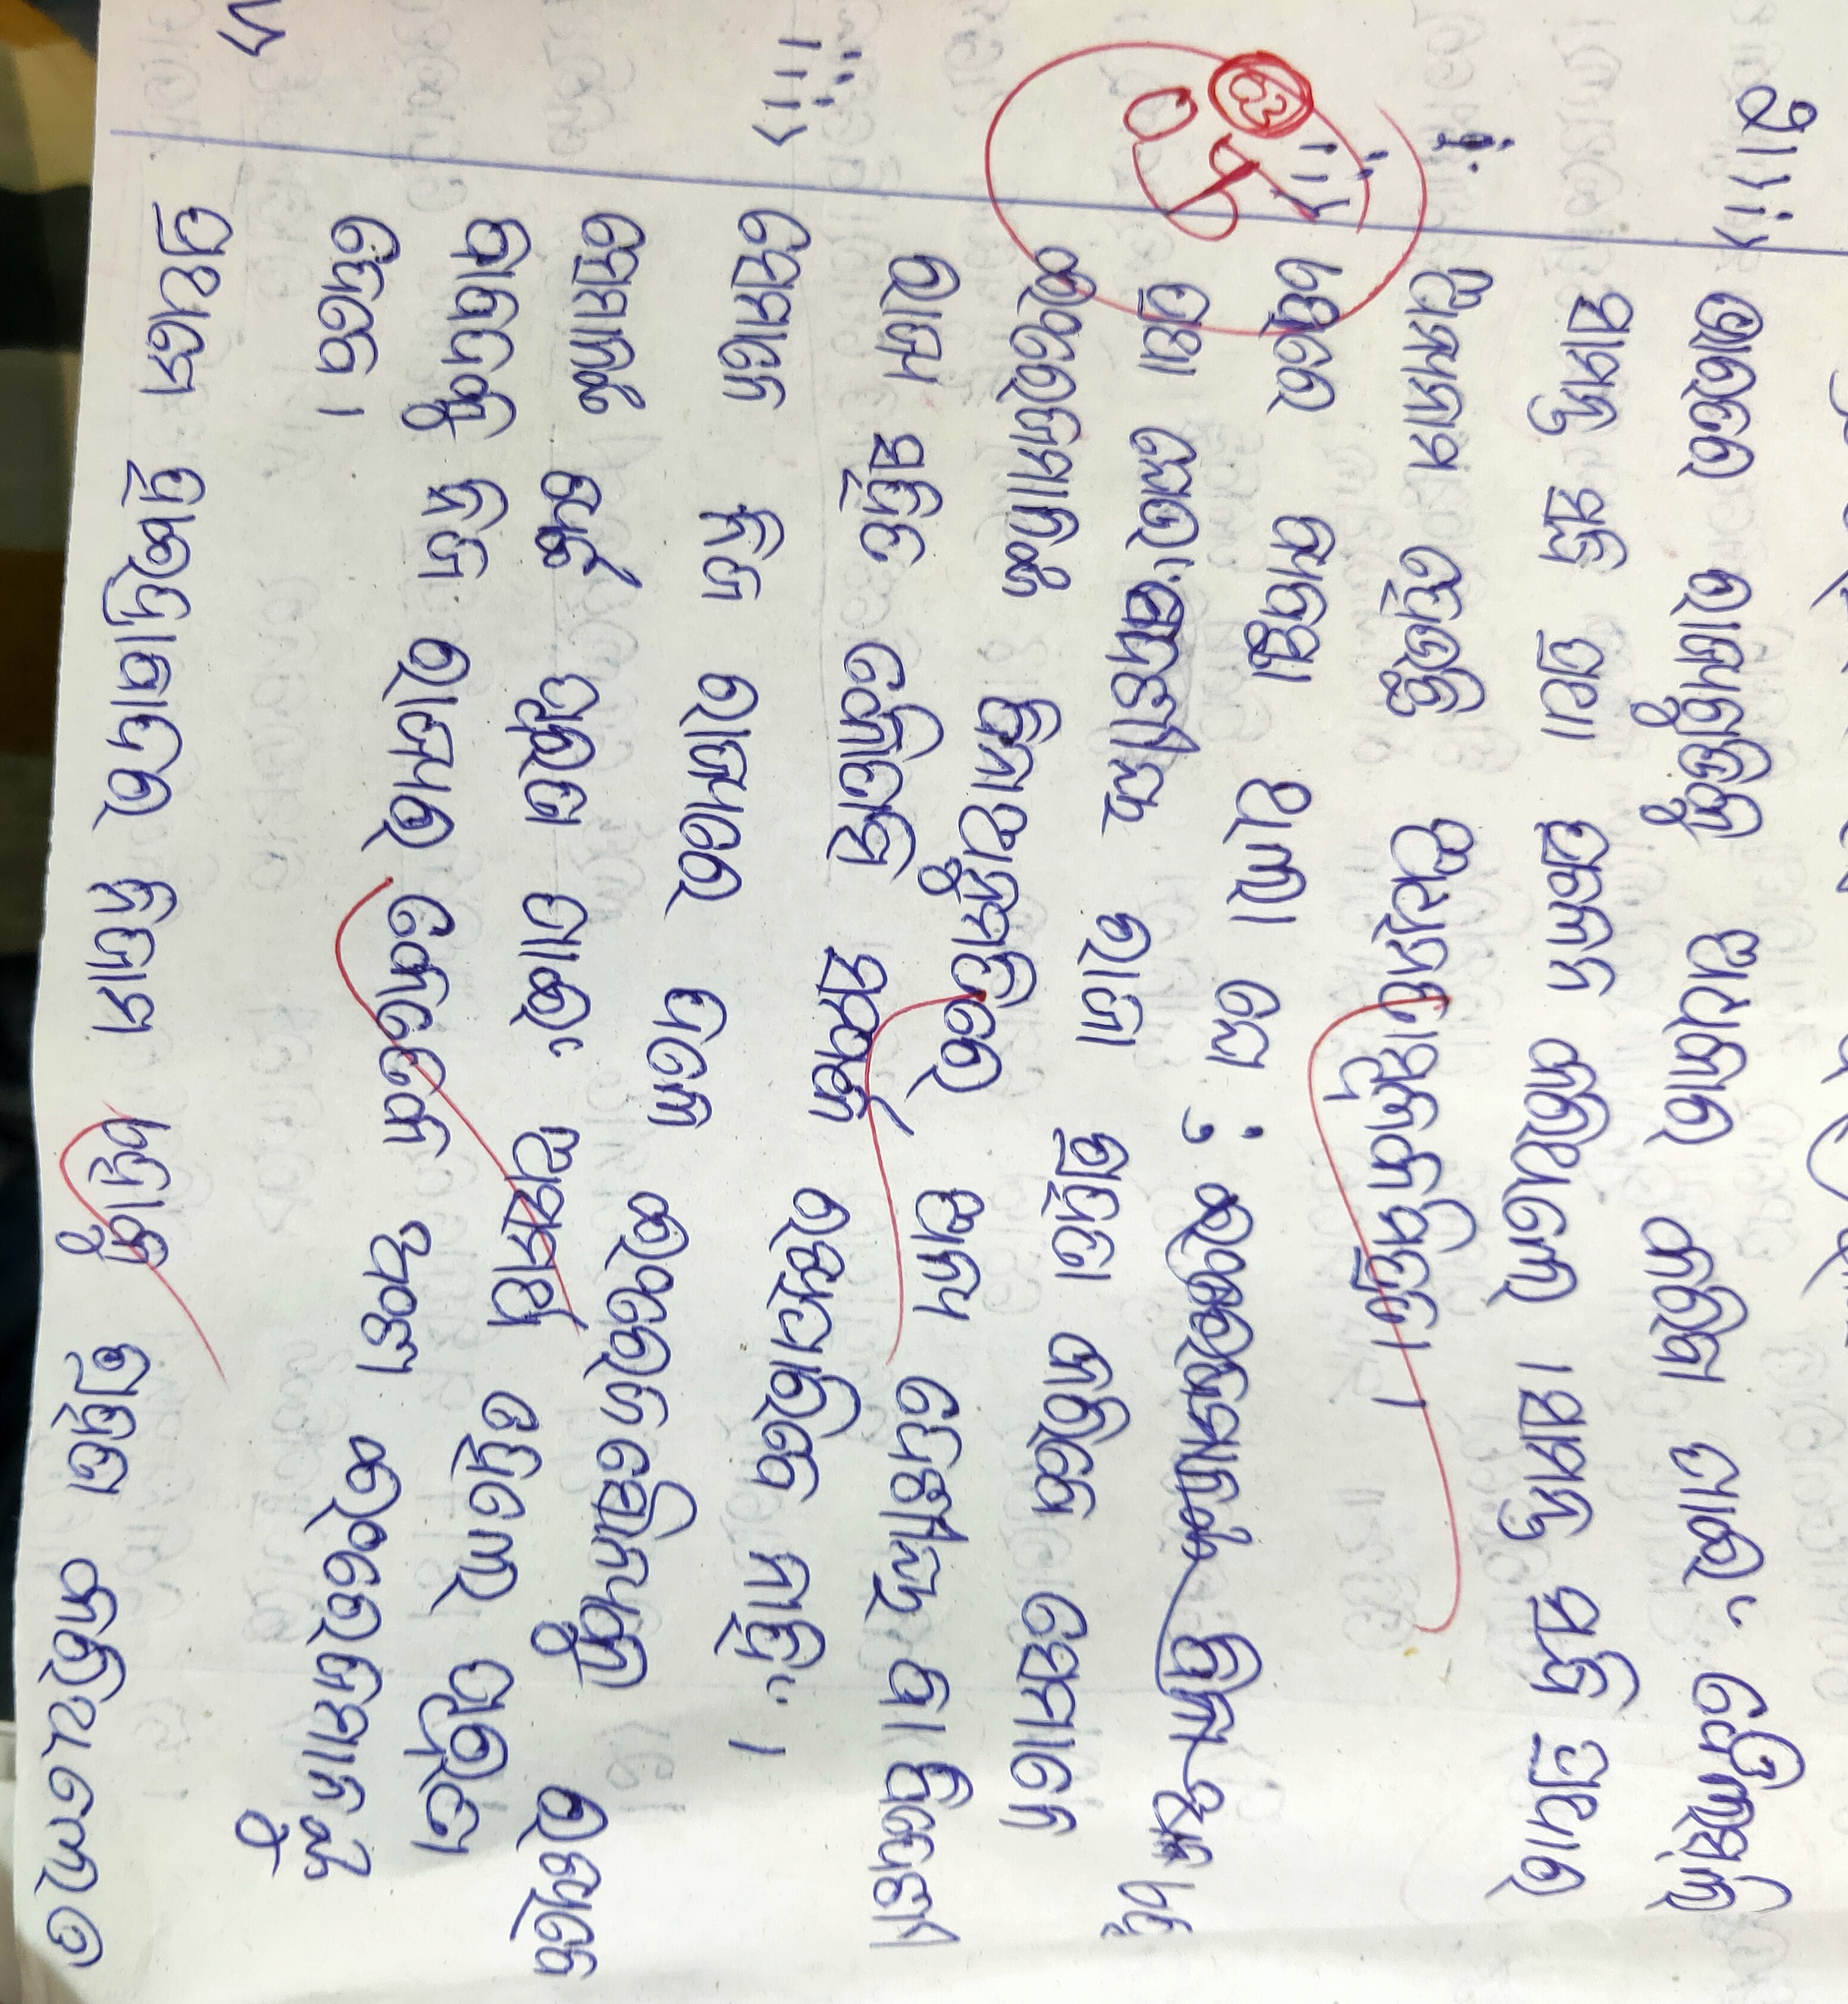 ୨।>i> ଭାରତରେ ରାଜ୍ୟଗୁଡିକୁ ଅଧିକାର କରିବା ପାଇଁ ୱେଲେସଲି
ସାମନ୍ତ ସନ୍ଧି ପ୍ରଥା ପ୍ରଚଳନ କରିଥିଲେ । ସାମନ୍ତ ସନ୍ଧି ପ୍ରଥାର
ଅନ୍ୟନାମ ହେଉଛି ଅଧିନତାମୂଳକମିତ୍ରତା ।
ii> ଏଥିରେ ବ୍ୟବସ୍ଥା ଥିଲା ଯେ ;
ପ୍ରଥା ଯେଉଁ ଦେଶୀୟ ରାଜା ଗ୍ରହଣ କରିବେ ସେମାନେ
ଇଂରେଜମାନଙ୍କ ବିନାଅନୁମତିରେ ଅନ୍ୟ ଦେଶୀୟ ବା ବିଦେଶୀ
ରାଜ୍ୟ ସହିତ କୌଣସି ସମ୍ପର୍କ ରଖିପାରିବେ ନାହିଁ ।
iii> ସେମାନେ ନିଜ ରାଜ୍ୟରେ ଦଳେ ଇଂରେଜସୈନ୍ୟକୁ ରଖିବେ
ସେମାନଙ୍କ ଖର୍ଚ୍ଚ ପୂରଣ ପାଇଁ ଅସମର୍ଥ ହେଲେ ପୂରଣ
ବାବଦକୁ ନିଜ ରାଜ୍ୟର କେତେକ ଅଂଶ ଇଂରେଜମାନଙ୍କୁ
ଦେବେ ।
v> ପ୍ରଥମେ ହାଇଦ୍ରାବାଦର ନିଜାମ ଏହାକୁ ଗ୍ରହଣ କରିଥିଲେ ଓ